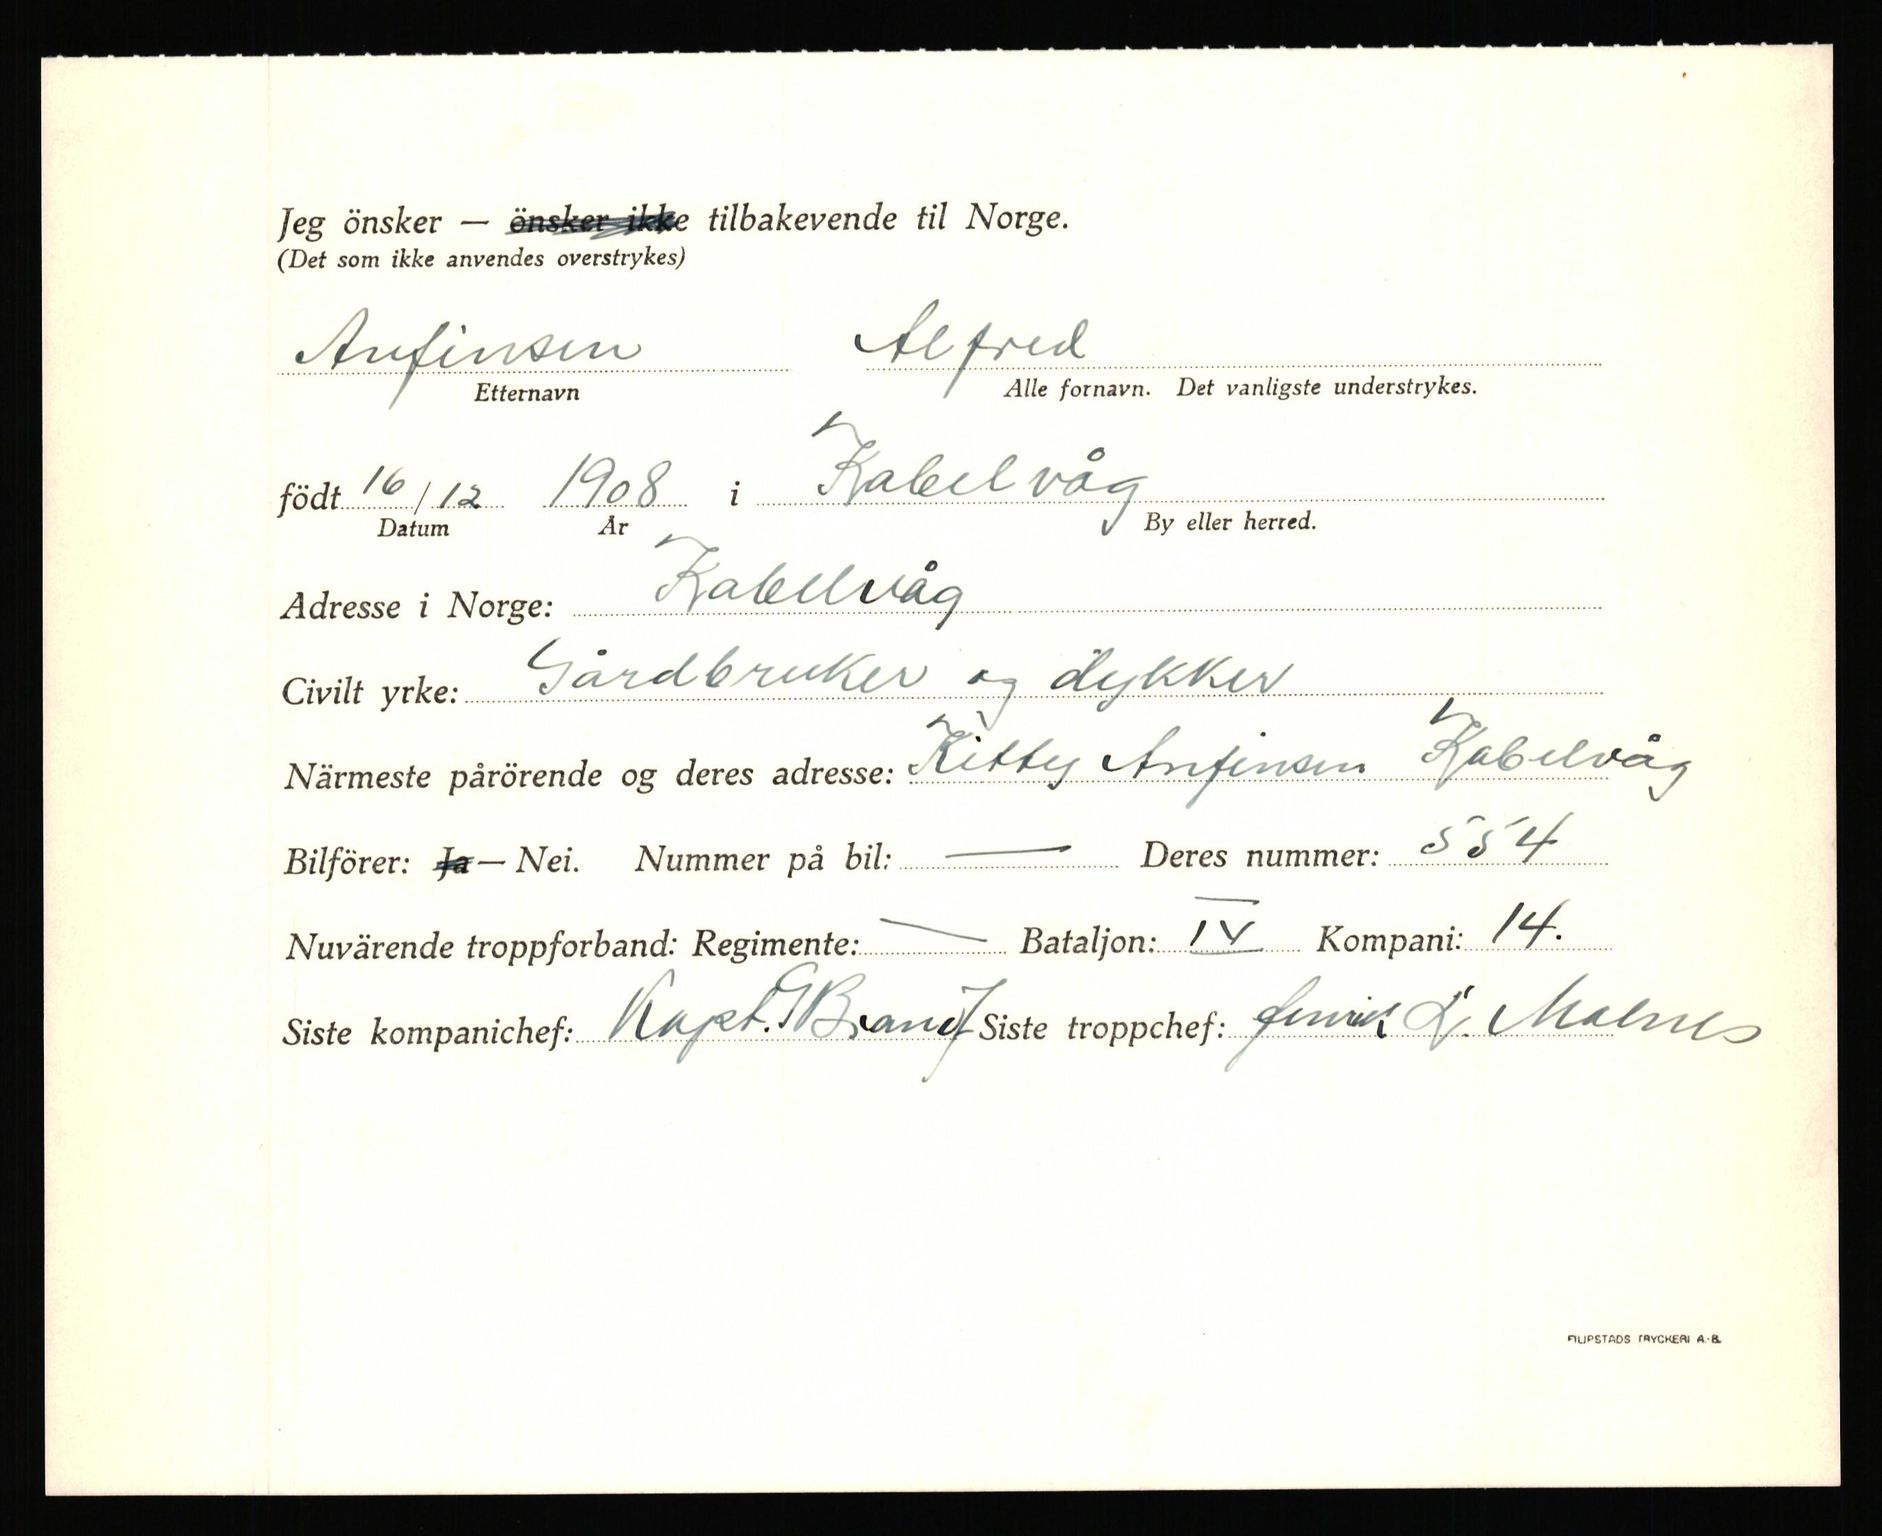 Jeg önsker — önsker ikke tilbakevende til Norge.
(Det som ikke anvendes overstrykes)
Anfinsen Alfred
Etternavn Alle fornavn. Det vanligste understrykes.
födt 16/12 1908 i Kabelvåg
Datum År By eller herred.
Adresse i Norge: Kabelvåg
Civilt yrke: Gårdbruker og dykker
Närmeste pårörende og deres adresse: Kitty Anfinsen Kabelvåg
Bilförer: Ja — Nei. Nummer på bil: — Deres nummer: 554
Nuvärende troppforband: Regimente: — Bataljon: IV Kompani: 14.
Siste kompanichef: Kapt. Siste troppchef: L. Molnes
FILIPSTADS TRYCKERI A.-B.